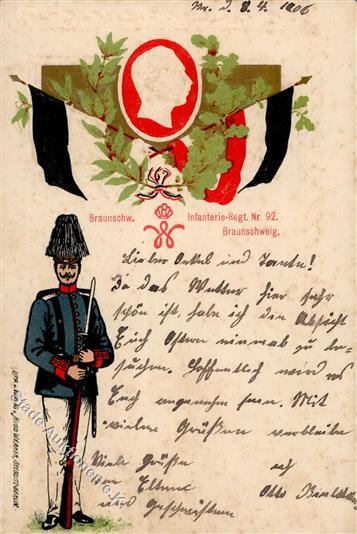 Br. d. 8. 4. 1906
Braunschw. Infanterie-Regt. Nr. 92.
Braunschweig,
W
Lieber Onkel und Tante!
Da das Wetter hier sehr
schön ist, habe ich die Absicht
Euch Ostern einmal zu be-
suchen. Hoffentlich wird es
Euch angenehm sein. Mit
vielen Grüßen verbleibe
ich
Otto
Viele Grüße
an Eltern
und Geschwister
Städte Auktionen e.K.